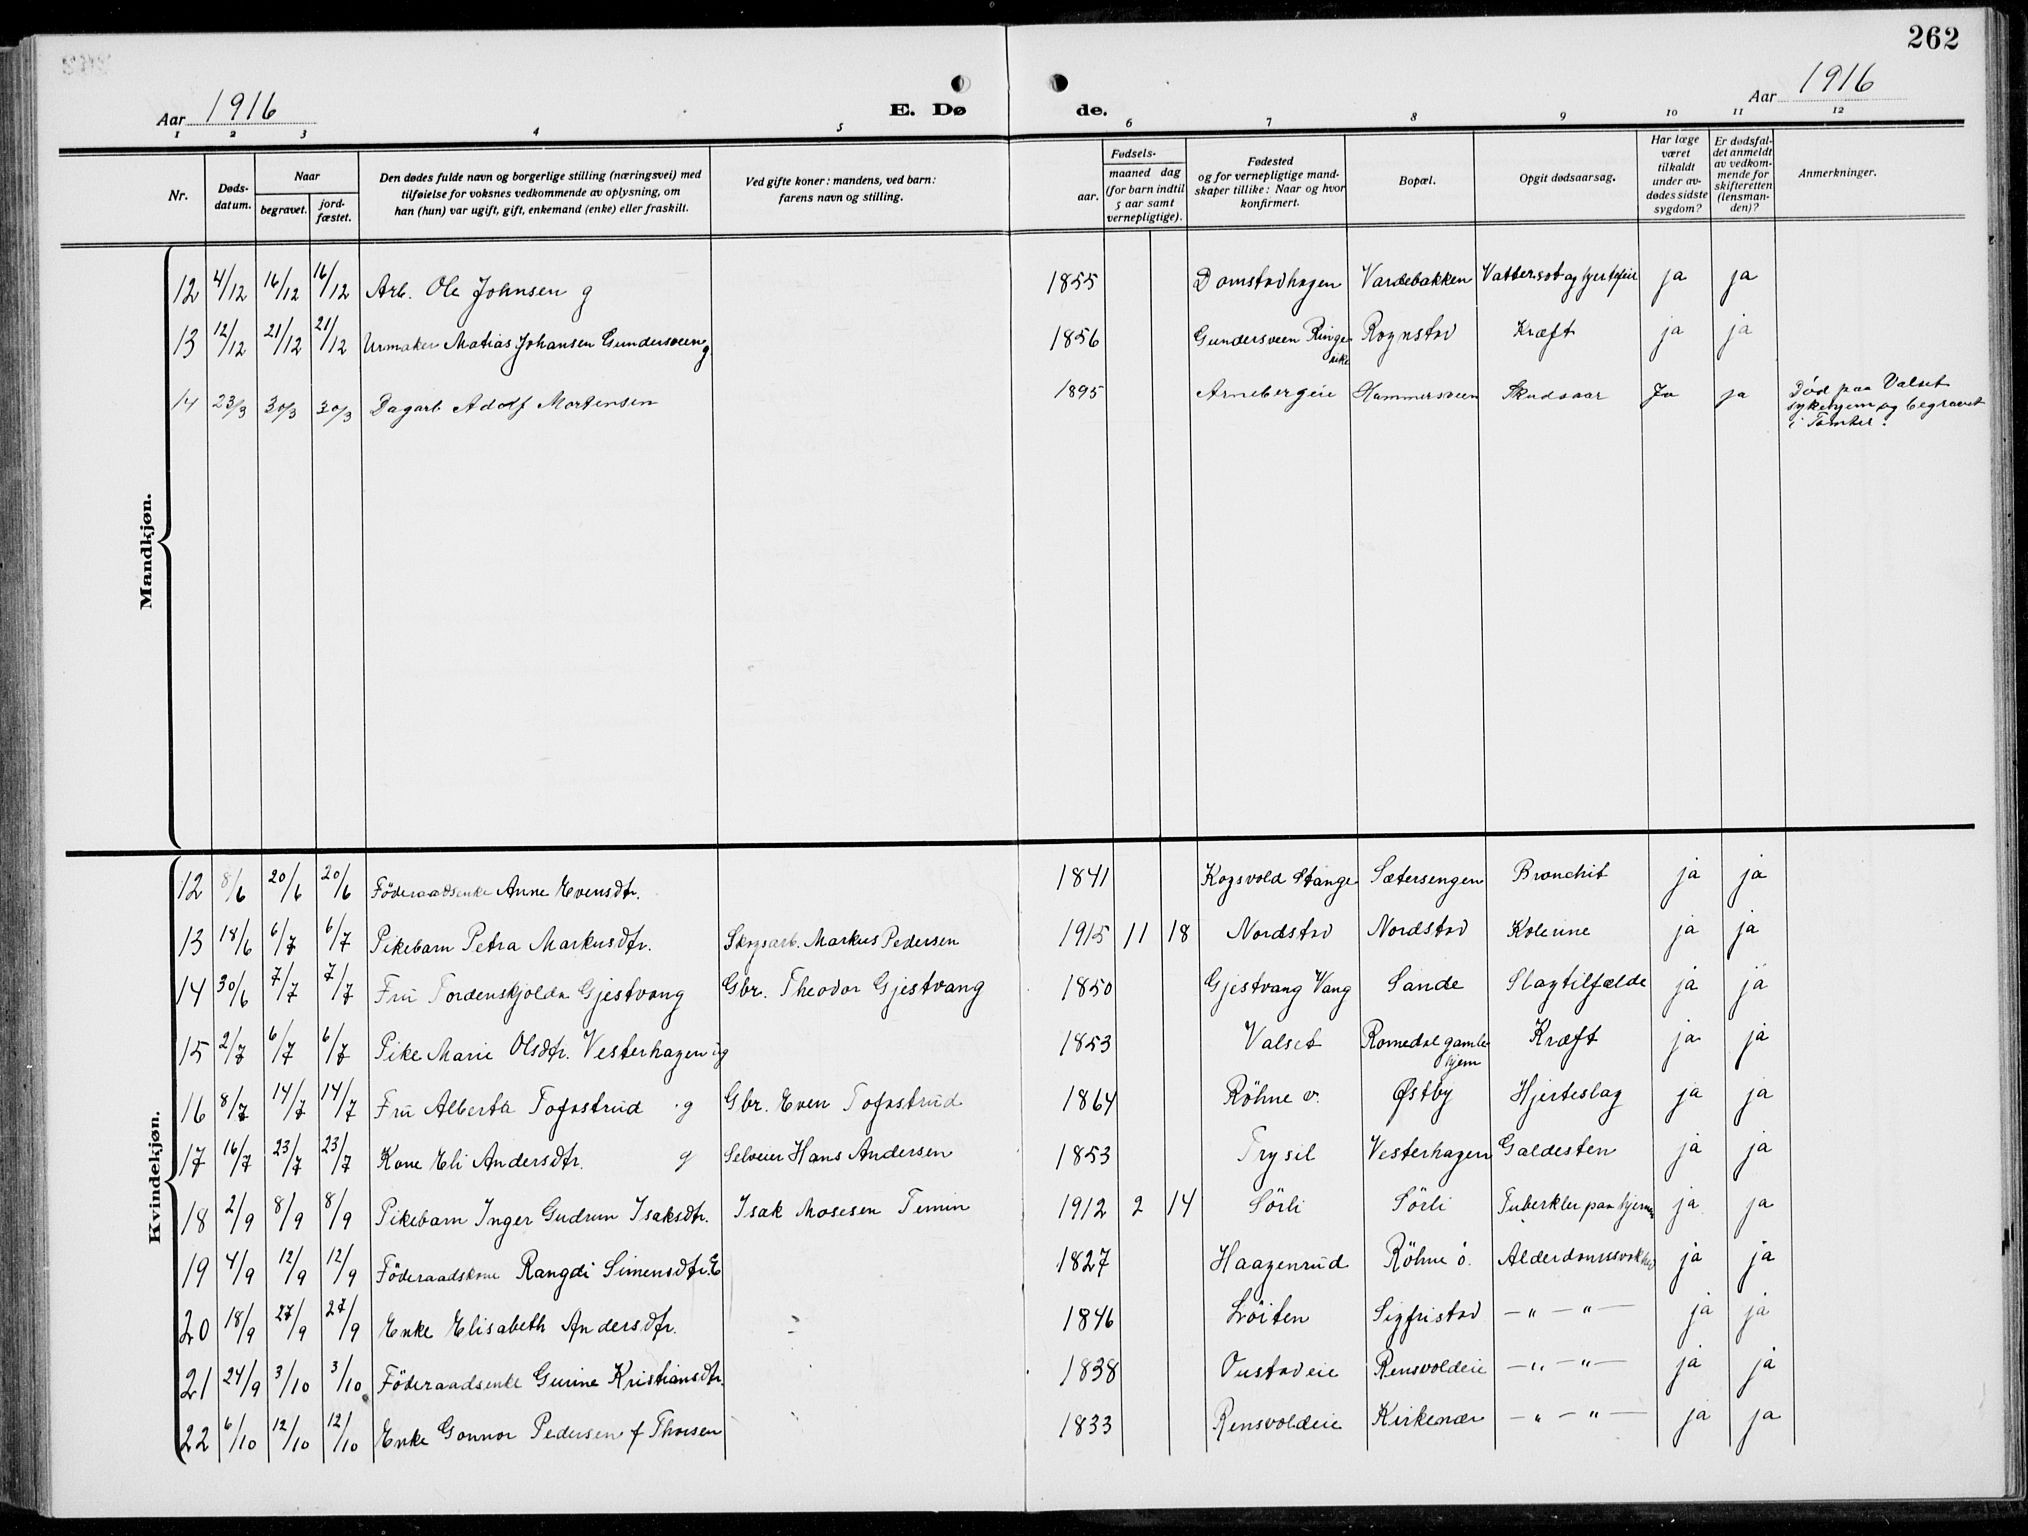 262
Aar 1916
E. Dø de.
Aar 1916
1 2 3 4 5 6 7 8 9 10 11 12
Nr.
Døds-datum.
Naar
begravet.
jord-fæstet.
Den dødes fulde navn og borgerlige stilling (næringsvei) med
tilføielse for voksnes vedkommende av oplysning, om
han (hun) var ugift, gift, enkemand (enke) eller fraskilt.
Ved gifte koner: mandens, ved barn:
farens navn og stilling.
Fødsels-
aar.
maaned dag
(for barn indtil
5 aar samt
vernepligtige).
Fødested
og for vernepligtige mand-
skaper tillike: Naar og hvor
konfirmert.
Bopæl.
Opgit dødsaarsag.
Har læge
været
tilkaldt
under av-
dødes sidste
sygdom?
Er dødsfal-
det anmeldt
av vedkom-
mende for
skifteretten
(lensman-
den)?
Anmerkninger.
Mandkjøn.
12 4/12 16/12 16/12 Arb. Ole Johnsen g 1855 Domstadhagen Vardebakken Vattersot og hjertefeil ja ja
13 12/12 21/12 21/12 Urmaker Matias Johansen Gundersveen g 1856 Gundersveen Ringerike Rognstad Kræft ja ja
14 23/3 30/3 30/3 Dagarb. Adolf Mortensen 1895 Arnebergeie Hammersveen Skudsaar Ja ja Død paa Valset
sykehjem og begravet
i Tomter.
Kvindekjøn.
12 8/6 20/6 20/6 Föderaadsenke Anne Evensdtr. 1841 Kogsvold Stange Sætersengen Bronchit ja ja
13 18/6 6/7 6/7 Pikebarn Petra Markusdtr. Skogsarb. Markus Pedersen 1915 11 18 Nordstad Nordstad Kolerine ja ja
14 30/6 7/7 7/7 Fru Tordenskjolda Gjestvang Gbr. Theodor Gjestvang 1850 Gjestvang Vang Sande Slagtilfælde ja ja
15 2/7 6/7 6/7 Pike Marie Olsdtr. Vesterhagen ug 1853 Valset Romedal gamlehjem Kræft ja ja
16 8/7 14/7 14/7 Fru Alberta Tofastrud g Gbr. Even Tofastrud 1864 Röhne v. Østby Hjerteslag ja ja
17 16/7 23/7 23/7 Kone Eli Andersdtr. g Selveier Hans Andersen 1853 Trysil Vesterhagen Galdesten ja ja
18 2/9 8/9 8/9 Pikebarn Inger Gudrun Isaksdtr. Isak Mosesen Temin 1912 2 14 Sörli Sörli Tuberkler paa hjernen ja ja
19 4/9 12/9 12/9 Föderaadskone Rangdi Simensdtr. E 1827 Haagenrud Röhne ö. Alderdomssvakhed ja ja
20 18/9 27/9 27/9 Enke Elisabeth Andersdtr. 1846 Löiten Sigfristad — " — " — ja ja
21 24/9 3/10 3/10 Föderaadsenke Gurine Kristiansdtr. 1838 Oustadeie Rensvoldeie — " — " — ja ja
22 6/10 12/10 12/10 Enke Gonnor Pedersen f Thoresen 1833 Rensvoldeie Kirkenær — " — " — ja ja